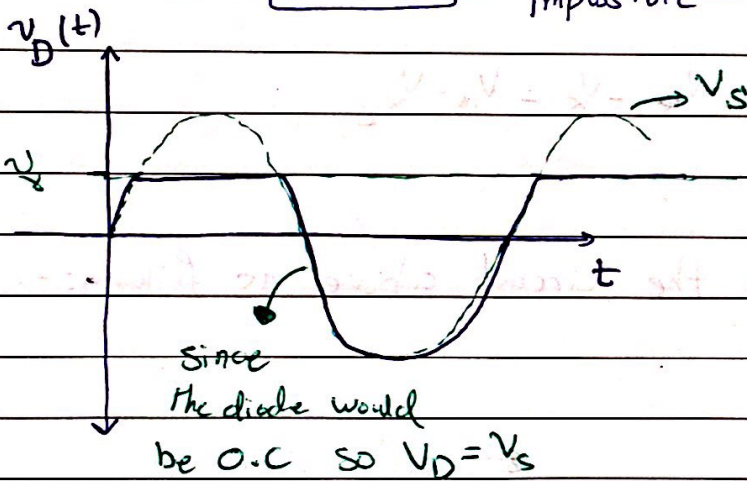 Impossible
v_D(t)
V_S
v_γ
t
since
the diode would
be O.C so V_D = V_S